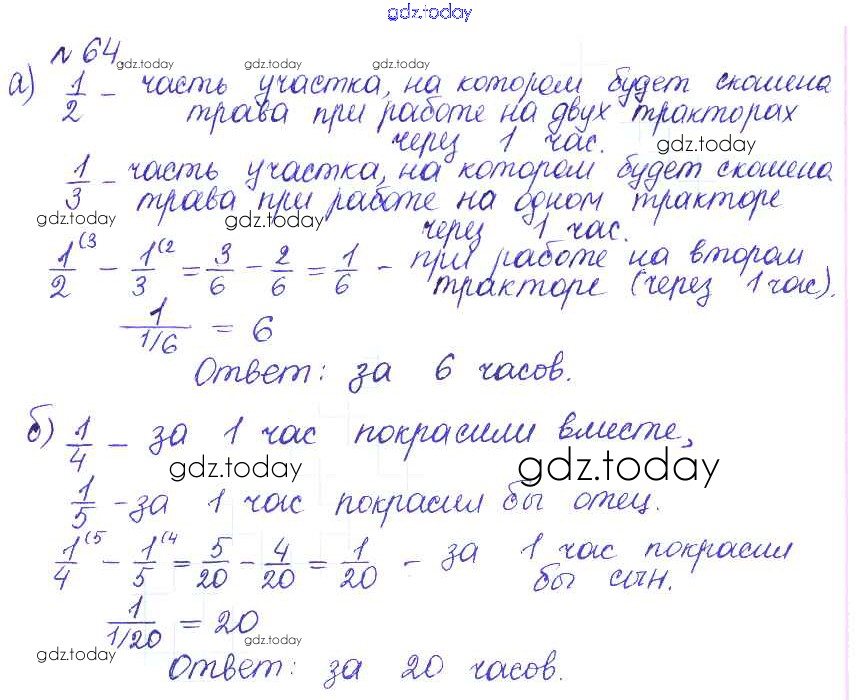 gdz.today
№ 64
gdz.today gdz.today gdz.today
а) 1/2 - часть участка, на котором будет скошена
трава при работе на двух тракторах
через 1 час.
gdz.today
1/3 - часть участка, на котором будет скошена
трава при работе на одном тракторе
gdz.today gdz.today
через 1 час.
1/2 (3 - 1/3 (2 = 3/6 - 2/6 = 1/6 - при работе на втором
тракторе (через 1 час).
1/1/6 = 6
Ответ: за 6 часов.
б) 1/4 - за 1 час покрасили вместе,
gdz.today gdz.today
1/5 - за 1 час покрасил бы отец.
1/4 (5 - 1/5 (4 = 5/20 - 4/20 = 1/20 - за 1 час покрасил
бы сын.
1/1/20 = 20
gdz.today gdz.today
Ответ: за 20 часов.